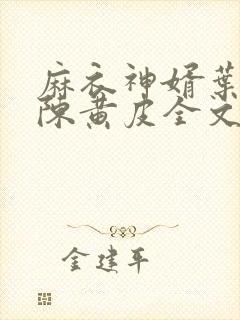 麻衣神婿葉
陳黃皮全文
金建平